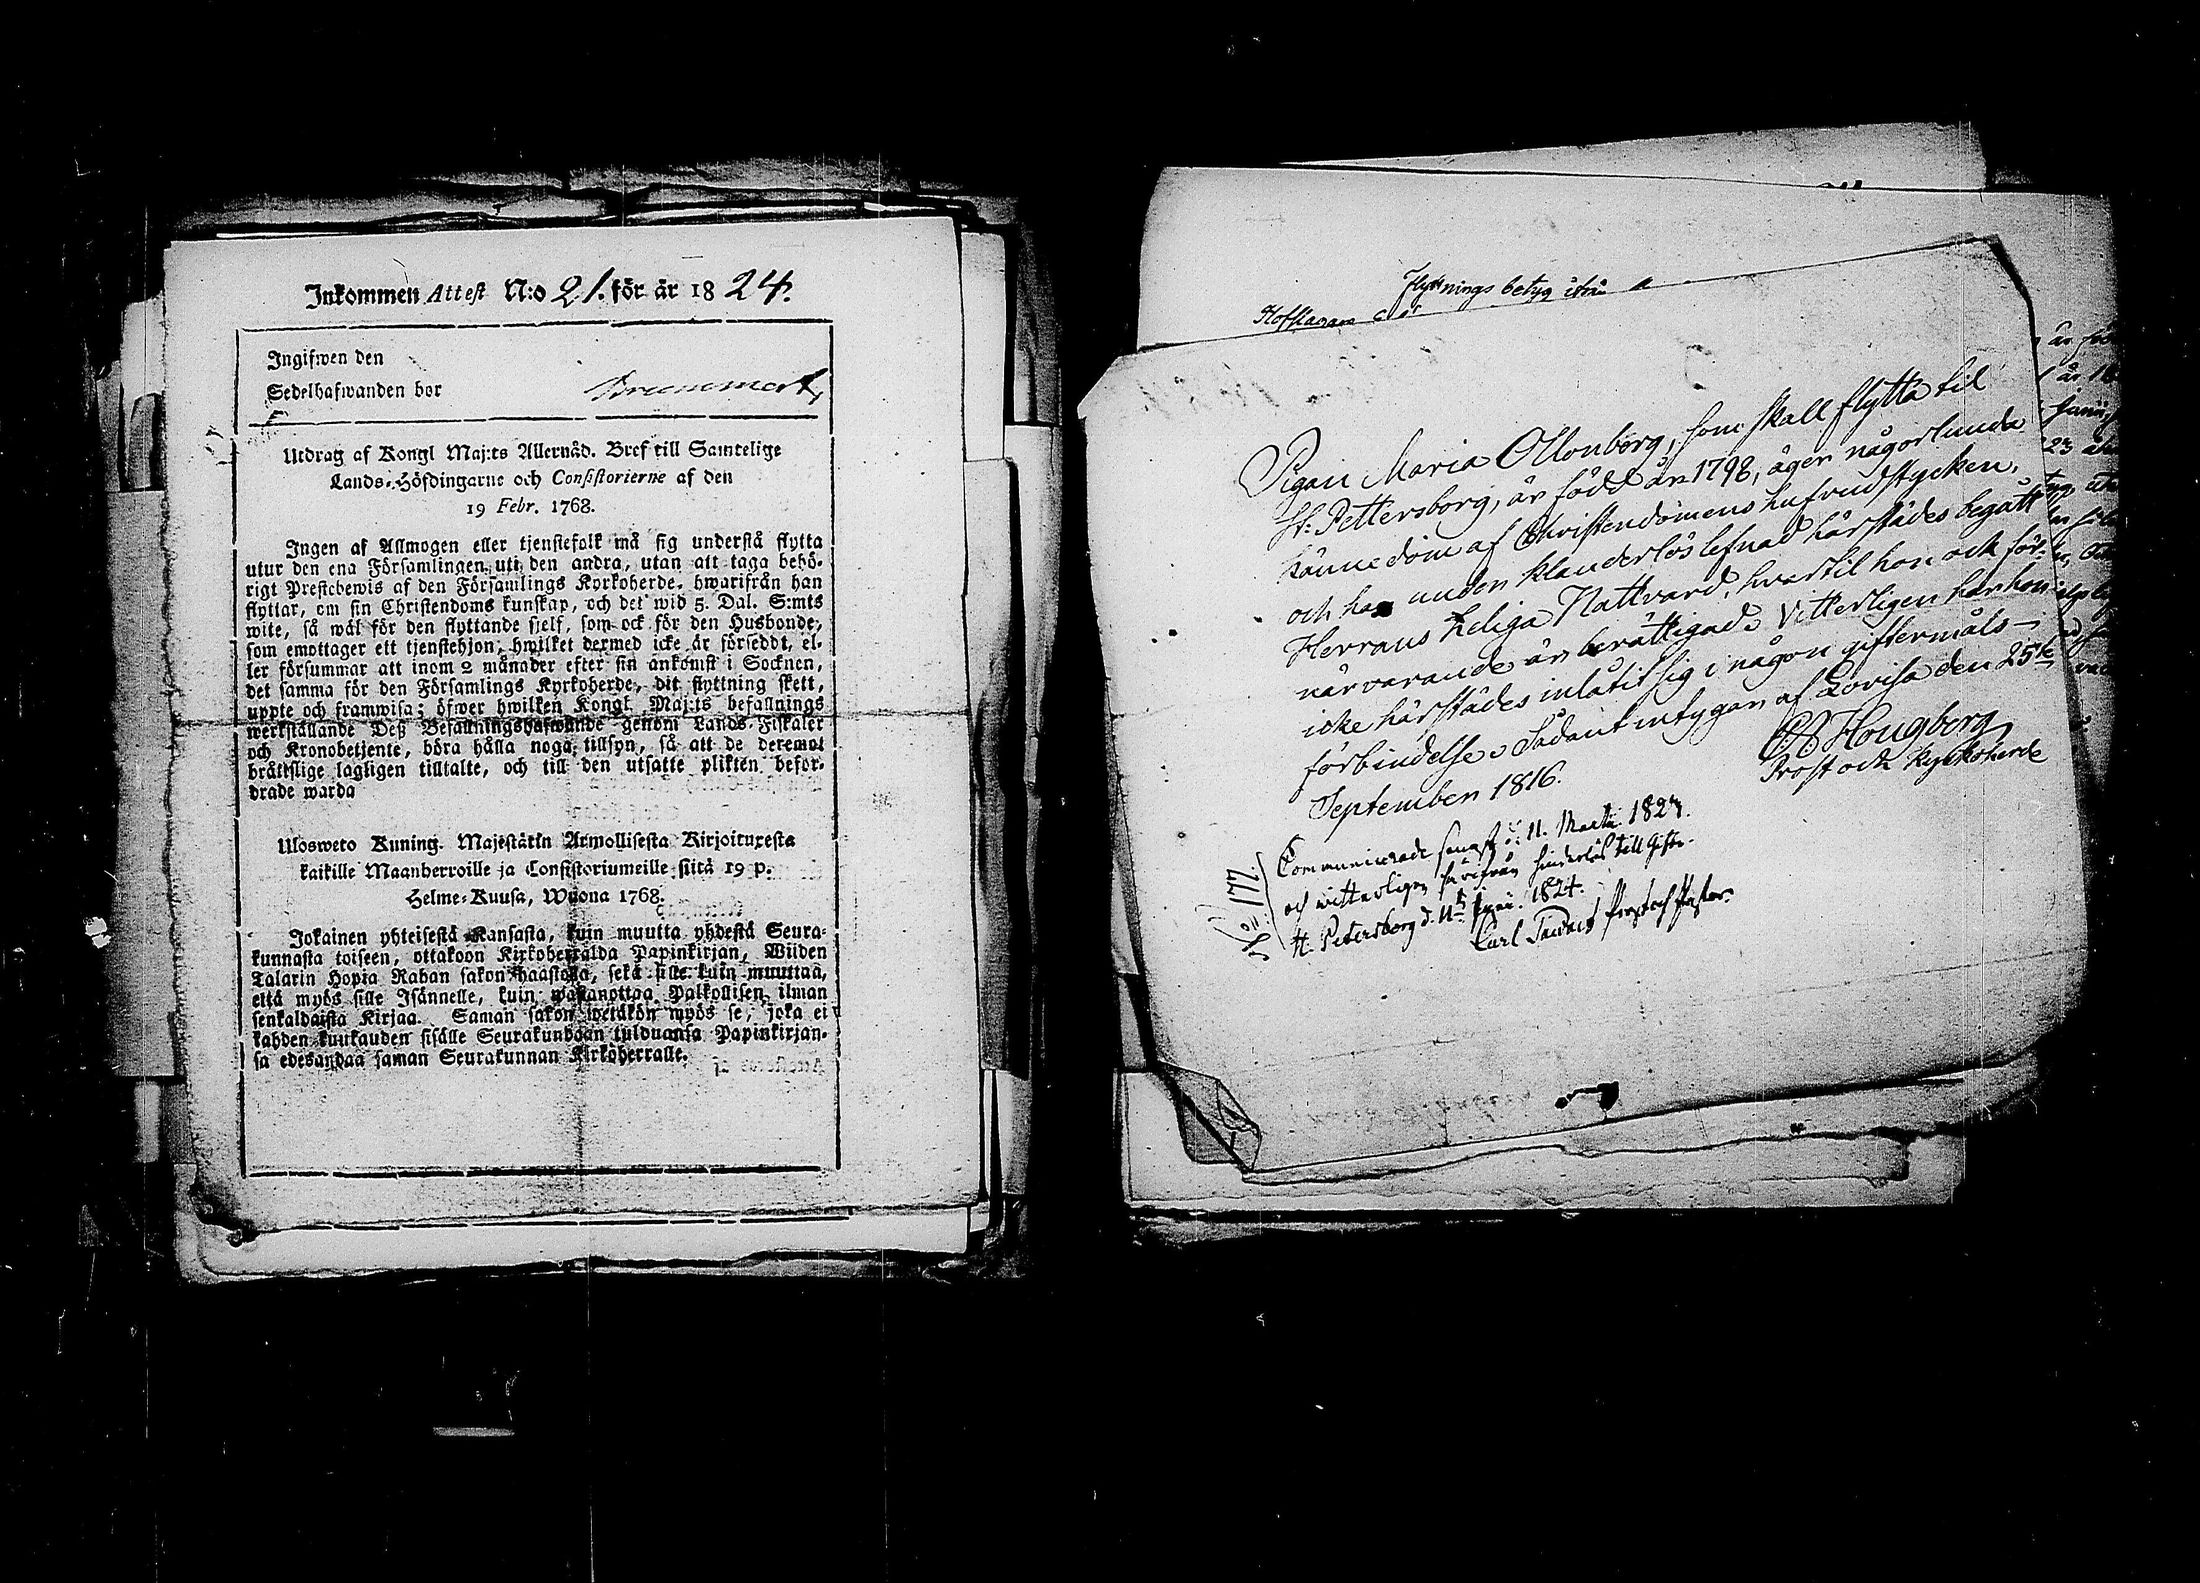 Inkommen Attest N:o 21. för år 1824.
Ingifwen den
Sedelhafwanden bor
Utdrag af Kongl Maj:ts Allernåd. Bref till Samtelige
Lands-Höfdingarne och Consistorierne af den
19 Febr. 1768.
Ingen af Allmogen eller tjenstefolk må sig understå flytta
utur den ena Församlingen uti den andra, utan att taga behö-
rigt Prestebewis af den Församlings Kyrkoherde, hwarifrån han
flyttar, om sin Christendoms kunskap, och det wid 5. Dal. S:mts
wite, så wäl för den flyttande sjelf, som ock för den Husbonde,
som emottager ett tjenstehjon, hwilket dermed icke är försedt, el-
ler försummar att inom 2 månader efter sin ankomst i Socknen,
det samma för den Församlings Kyrkoherde, dit flyttning skett,
uppte och framwisa; öfwer hwilken Kongl. Maj:ts befallnings
werkställande Deß Befallningshafwande genom Lands-Fiskaler
och Kronobetjente, böra hålla noga tillsyn, så att de deremot
bråtslige lagligen tilltalte, och till den utsatte plikten befor-
drade warda
Ulosweto Kuning. Majestätin Armollisesta Kirjoituxesta
kaikille Maanherroille ja Consistoriumeille siitä 19 p.
Helme-Kuusa, Wuona 1768.
Jokainen yhteisestä Kansasta, kuin muutta yhdestä Seura-
kunnasta toiseen, ottakoon Kirkoherralda Papinkirjan, Wiiden
Talarin Hopia Rahan sakon haastolla, sekä sille kuin muuttaa,
että myös sille Isännelle, kuin wastanottaa Palkollisen ilman
senkaldaista Kirjaa. Saman sakon wetäkön myös se, joka ei
kahden kuukauden sisälle Seurakundaan tulduansa Papinkirjan-
sa edesandaa saman Seurakunnan Kirkoherralle.
Flyttnings betyg ifrån
Pigan Maria Ollonborg, som skall flytta til
St: Pettersborg, är född år 1798, äger någorlunda
kännedom af Christendomens hufvudstycken,
och har under klanderlös lefnad härstädes begått
Herrans Heliga Nattvard, hvartil hon ock för-
närvarande är berättigad. Vitterligen har hon
icke härstädes inlåtit sig i någon giftermåls-
förbindelse. Sådant intygar af Lovisa den 25te
September 1816.
Hougberg
Prost och Kyrkoherde
No 177.
Communicerade senast d: 11. Martii 1824.
och witterligen härifrån hinderlös till Gifte.
St. Petersborg d. 11te Junii. 1824.
Carl Prost och Pastor.